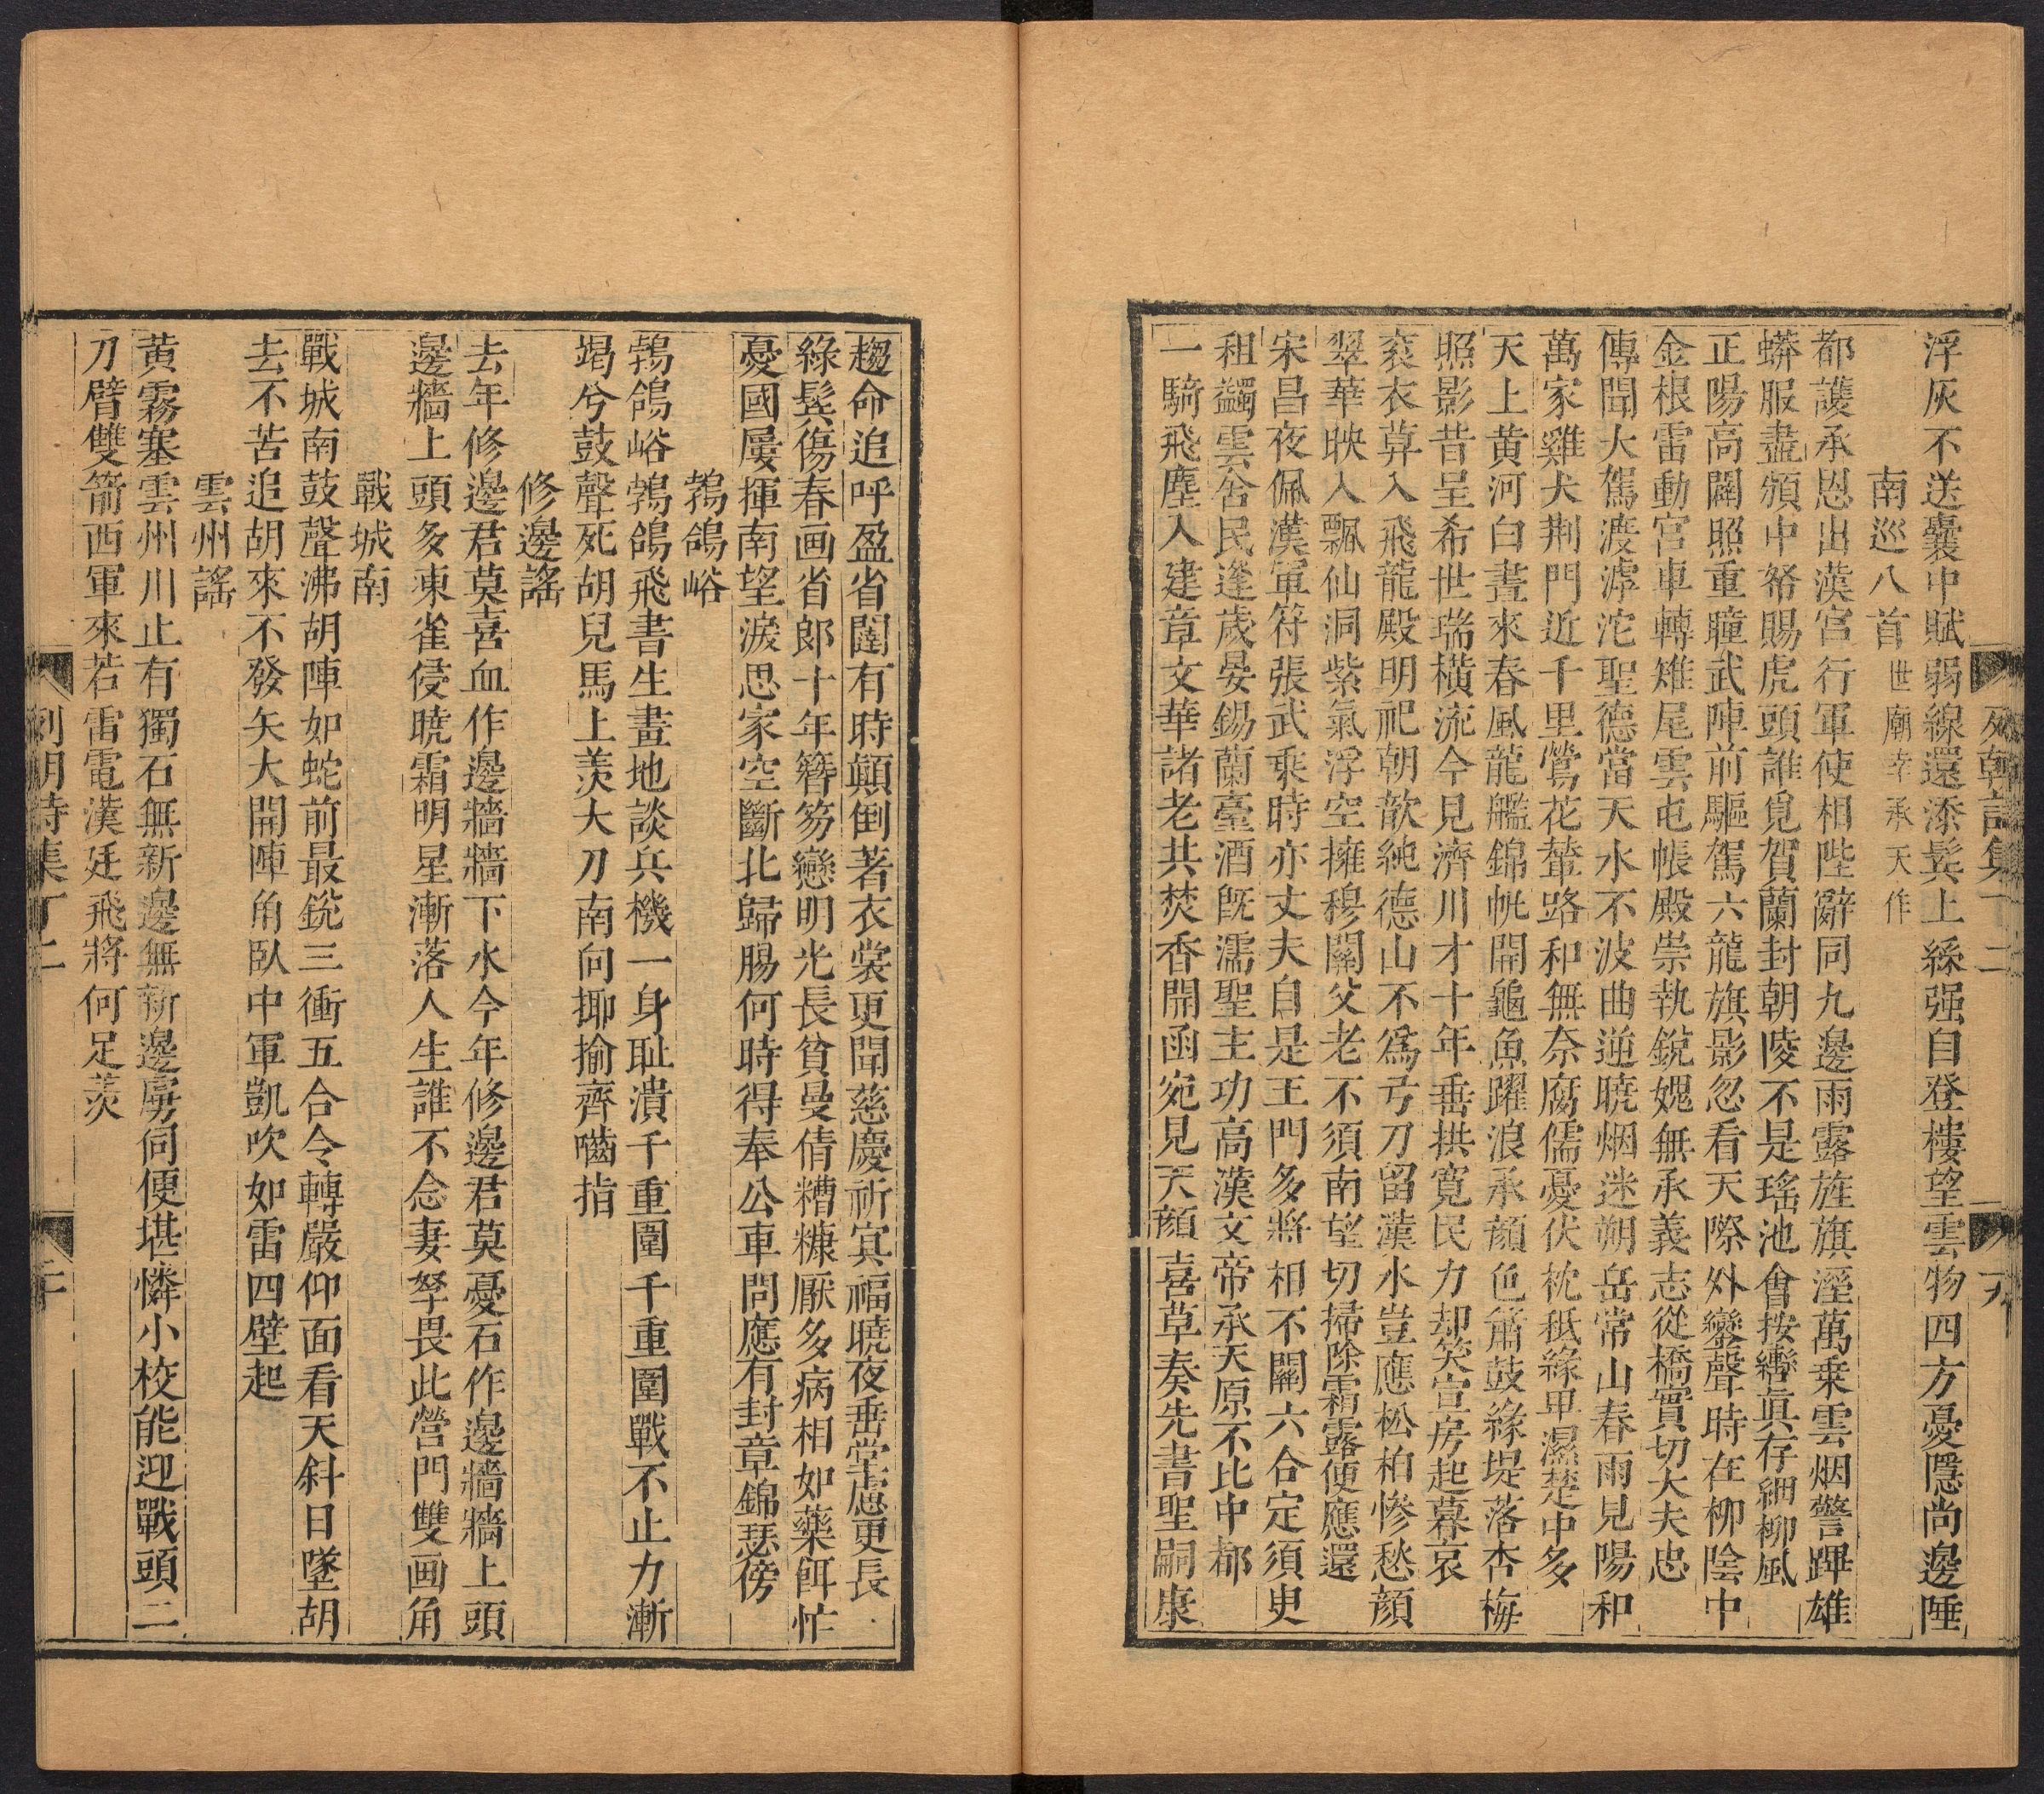 浮灰不送囊中賦弱線還添鬓上絲强自登樓望雲物四方憂隱尚邊陲
南巡八首世廟幸承天作
都護承恩出漢宮行軍使相陛辭同九邊雨露旌旗溼萬乗雲烟警蹕雄
蟒服盡頒中帑賜虎頭誰覓賀蘭封朝陵不是瑤池會按轡真存細柳風
正陽高闢照重瞳武陣前驅駕六龍旗影忽看天際外鑾聲時在柳陰中
金根雷動宮車轉雉尾雲屯帳殿崇執銳媿無承義志從橋實切大夫忠
傳聞大駕渡滹沱聖德當天水不波曲逆曉烟迷朔岳常山春雨見陽和
萬家雞犬荆門近千里鶯花輦路和無奈腐儒憂伏枕秪緣卑濕楚中多
天上黄河白晝來春風龍艦錦帆開龜魚躍浪承顔色簫鼓緣堤落杏梅
照影昔呈希世瑞横流今見濟川才十年垂拱寛民力却笑宣房起暮哀
袞衣算入飛龍殿明祀朝歆純德山不爲弓刀留漢水豈應松柏慘愁顔
翠華映人飄仙洞紫氣浮空擁穆關父老不須南望切掃除霜露便應還
宋昌夜佩漢軍符張武乘時亦丈夫自是王門多將相不關六合定須史
租蠲雲舍民逢歲晏錫蘭臺酒旣濡聖主功高漢文帝承天原不比中都
一騎飛塵入建章文華諸老共焚香開函宛見天顔喜草奏先書聖嗣康
趨命追呼盈省闥有時顛倒著衣裳更聞慈慶祈冥福曉夜垂堂慮更長
綠鬓傷春画省郎十年簪笏戀明光長貧曼倩糟糠厭多病相如藥餌忙
憂國屢揮南望淚思家空斷北歸腸何時得奉公車問應有封章錦瑟傍
鵓鴿峪
鵓鴿峪鵓鴿飛書生畫地談兵機一身耻潰千重圍千重圍戰不止力漸
竭兮鼓聲死胡兒馬上羨大刀南向揶揄齊嚙指
修邊謠
去年修邊君莫喜血作邊牆牆下水今年修邊君莫憂石作邊牆牆上頭
邊牆上頭多凍雀侵曉霜明星漸落人生誰不念妻孥畏此營門雙画角
戰城南
戰城南鼓聲沸胡陣如蛇前最銳三衝五合令轉嚴仰面看天斜日墜胡
去不苦追胡來不發矢大開陣角臥中軍凱吹如雷四壁起
雲州謠
黄霧塞雲州川止有獨石無新邊無新邊虜伺便堪憐小校能迎戰頭二
刀臂雙箭西軍來若雷電漢廷飛將何足羨